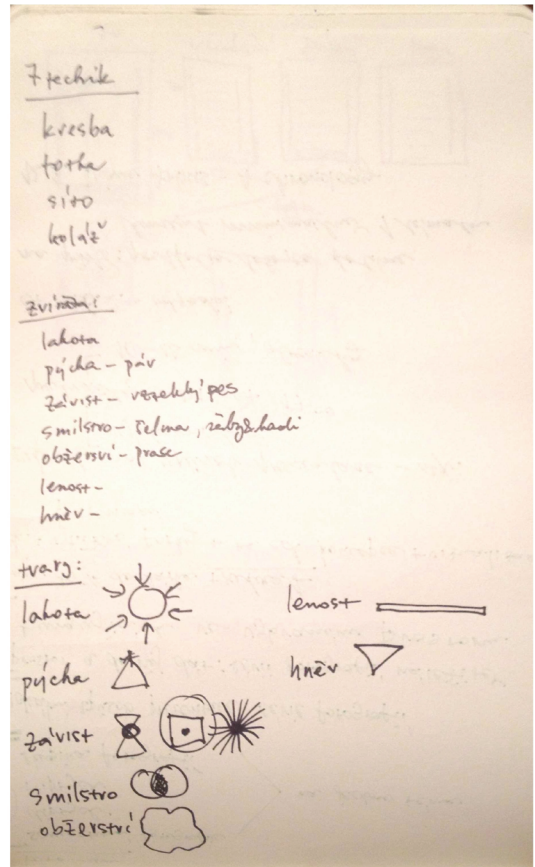 7 technik
kresba
fotka
síto
koláž
zvířata:
lakota
pýcha – páv
závist – vzteklý pes
smilstro – šelma, žáby & hadi
obžerství – prase
lenost –
hněv –
tvary:
lakota
pýcha
závist
smilstro
obžerství
lenost
hněv